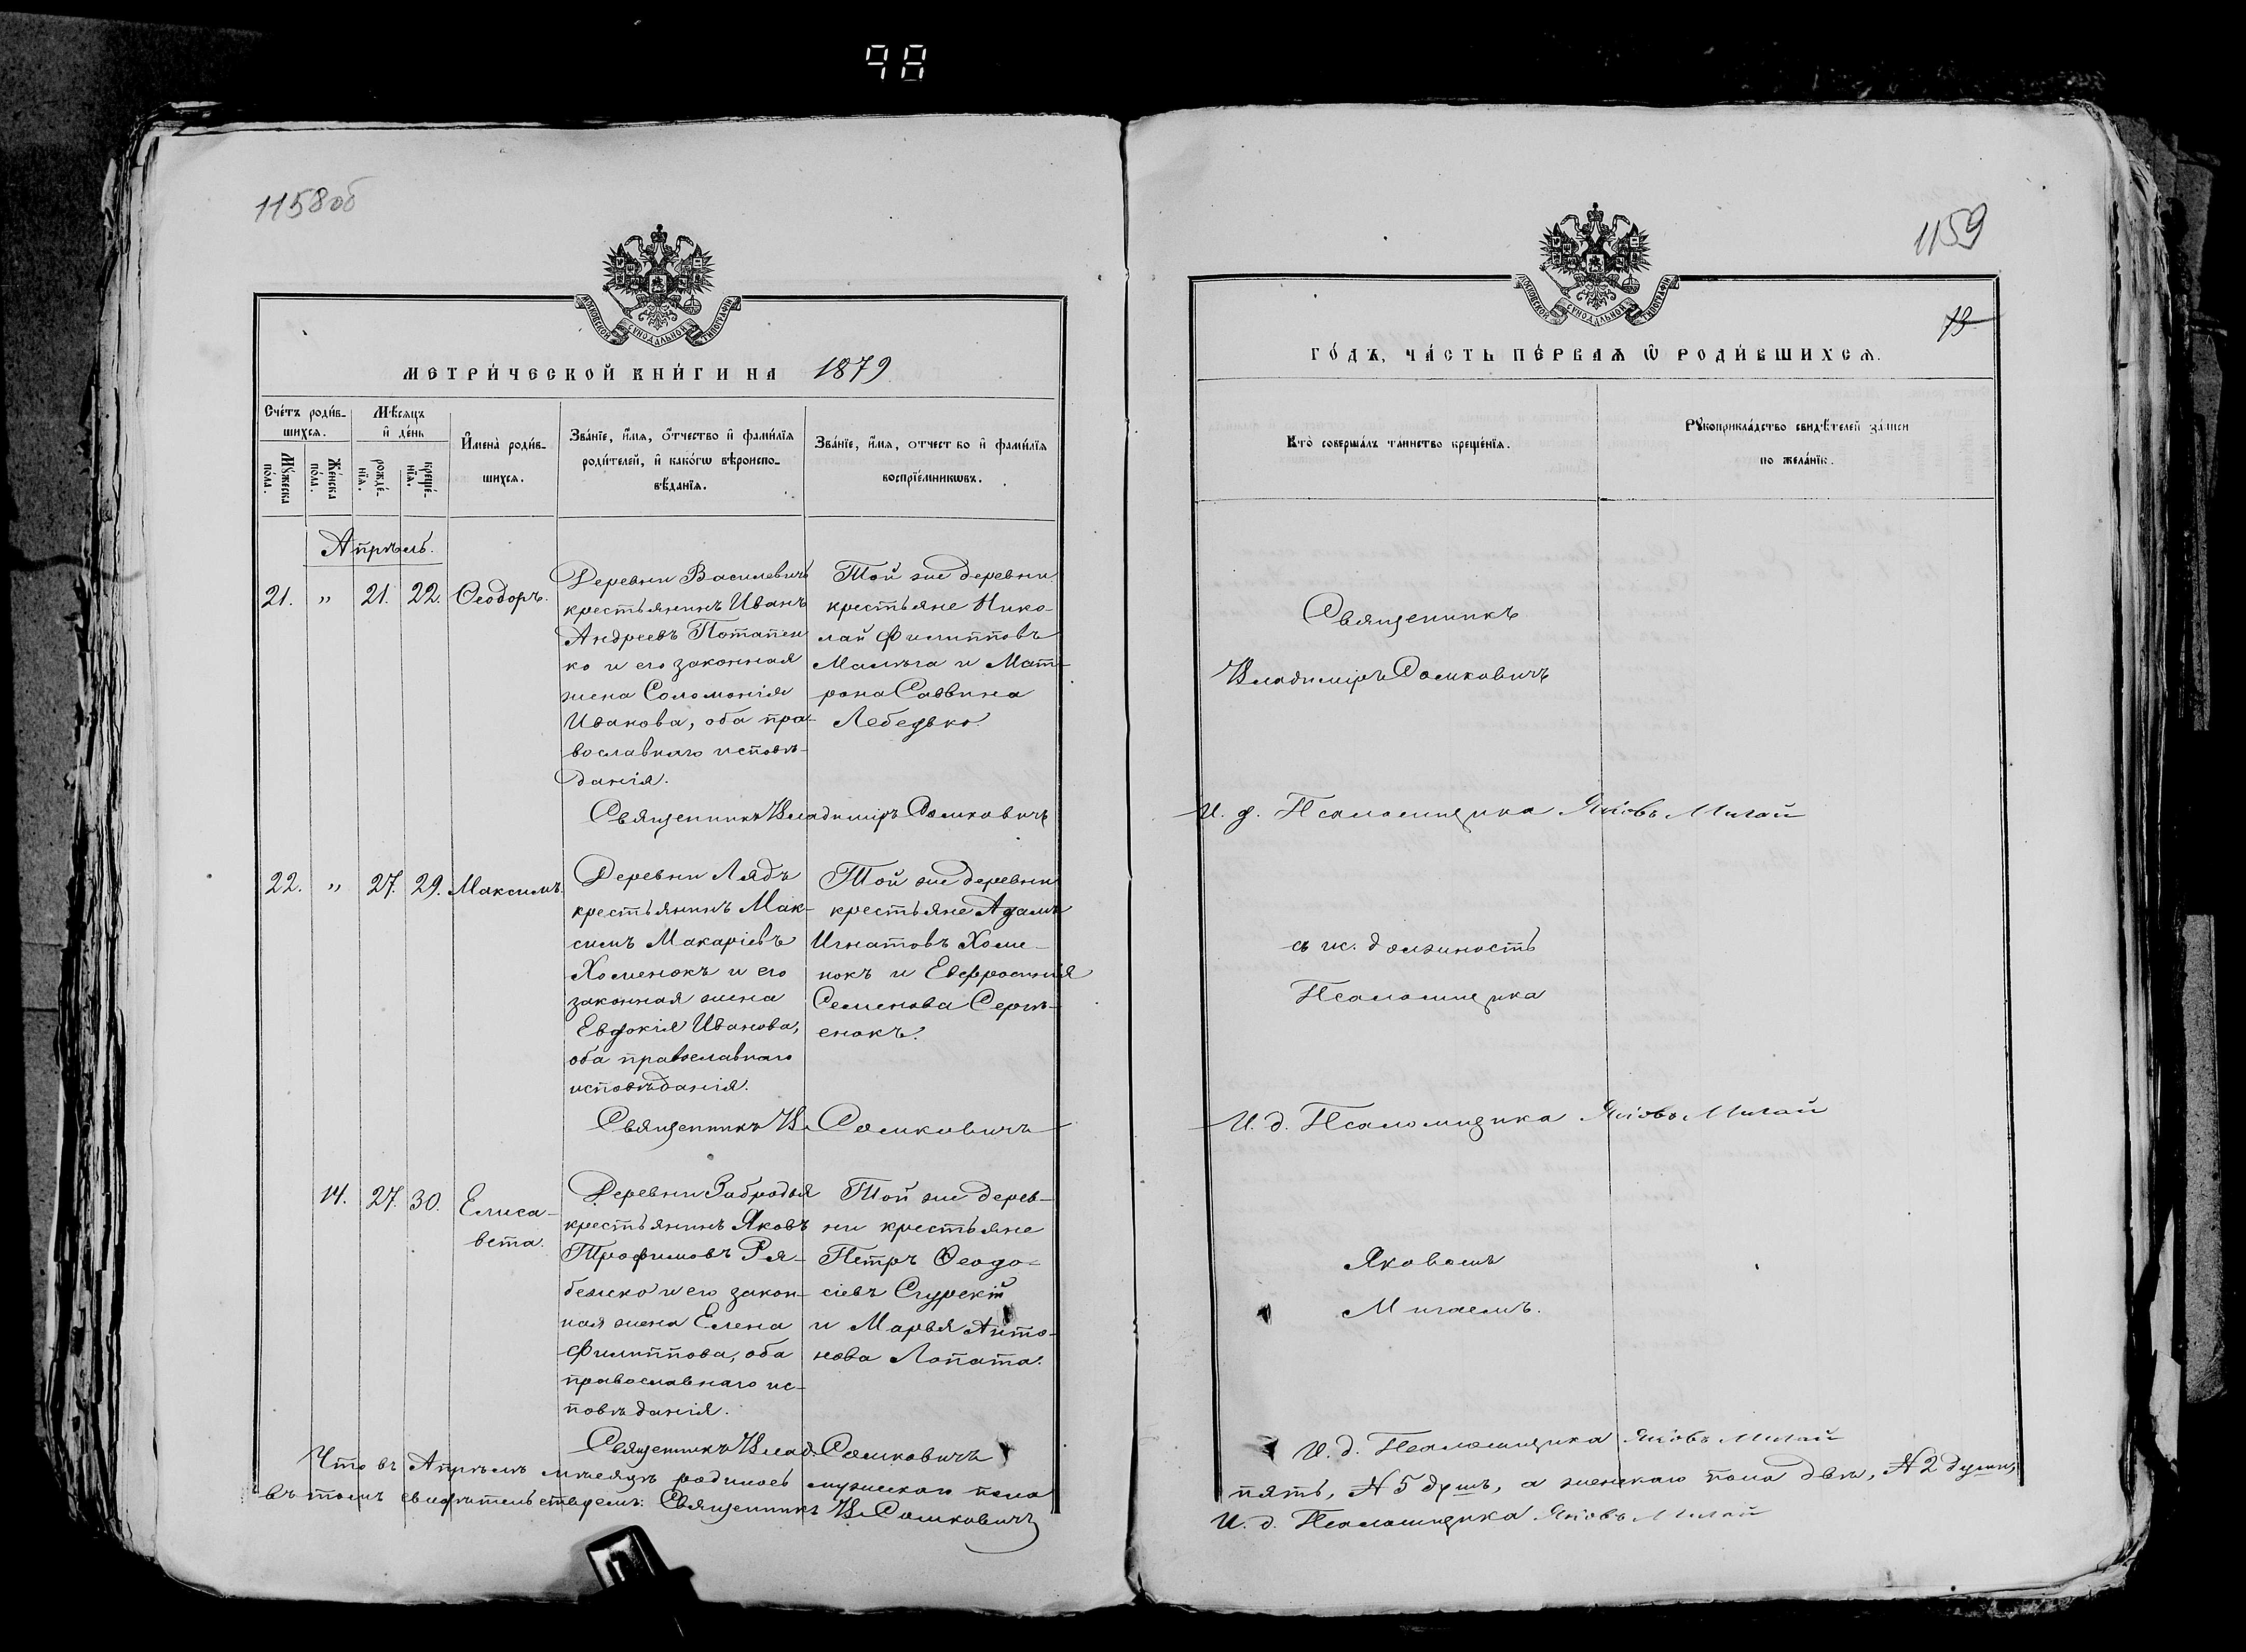 98
1158об
МОСКОВСКОЙ СУНОДАЛЬНОЙ ТИПОГРАФІИ
МЕТРИ́ЧЕСКОЙ КНИ́ГИ НА 1879
Сче́тъ роди́в-
шихся.
Мѣ́сяцъ
и҆ де́нь
Му́жеска
по́ла.
Же́нска
по́ла.
рожде́-
нїѧ.
креще́-
нїѧ.
И҆мена̀ роди́в-
шихся.
Зва́нїе, и҆́мѧ, о҆́тчество и҆ фами́лїѧ
роди́телей, и҆ како́гѡ вѣроиспо-
вѣ́данїѧ.
Зва́нїе, и҆́мѧ, отчество и҆ фами́лїѧ
воспрїе́мникѡвъ.
Апрѣль.
21. " 21. 22. Ѳеодоръ.
Деревни Василевичъ
крестьянинъ Иванъ
Андреевъ Потапен
ко и его законная
жена Соломонія
Иванова, оба пра-
вославнаго исповѣ-
данія.
Той же деревни
крестьяне Нико-
лай Филипповъ
и Мат-
рона Саввина
Лебедько.
Священникъ Владиміръ Сошковичъ
22. " 27. 29. Максимъ.
Деревни Лядъ
крестьянинъ Мак-
симъ Макаріевъ
Хоменокъ и его
законная жена
Евдокія Иванова,
оба православнаго
исповѣданія.
Той же деревни
крестьяне Адамъ
Игнатовъ Хоме-
нокъ и Евфросинія
Семенова Сергѣ-
енокъ.
Священникъ В. Сошковичъ
14. 27. 30. Елиса-
вета.
Деревни Забродья
крестьянинъ Яковъ
Трофимовъ Ря-
и его закон-
ная жена Елена
Филиппова, оба
православнаго ис-
повѣданія.
Той же дерев-
ни крестьяне
Петръ Ѳеодо-
сіевъ
и Марья Анто-
нова Лопата.
Священникъ Влад. Сошковичъ
Что въ Апрѣлѣ мѣсяцѣ родилось мужескаго пола
въ томъ свидѣтельствуемъ: Священникъ В. Сошковичъ
1159
13
МОСКОВСКОЙ СУНОДАЛЬНОЙ ТИПОГРАФІИ
ГО́ДЪ, ЧА́СТЬ ПЕ́РВАѦ Ѽ РОДИ́ВШИХСѦ.
Кто̀ соверша́лъ та́инство креще́нїѧ.
Рꙋкоприкла́дство свидѣ́телей за́писи
по жела́нїю.
Священникъ
Владиміръ Сошковичъ
И. д. Псаломщика Яковъ Мигай
съ ис. должность
Псаломщика
И. д. Псаломщика Яковъ Мигай
Яковомъ
Мигаемъ.
И. д. Псаломщика Яковъ Мигай
пять, № 5 душъ, а женскаго пола двѣ, № 2 души,
И. д. Псаломщика Яковъ Мигай